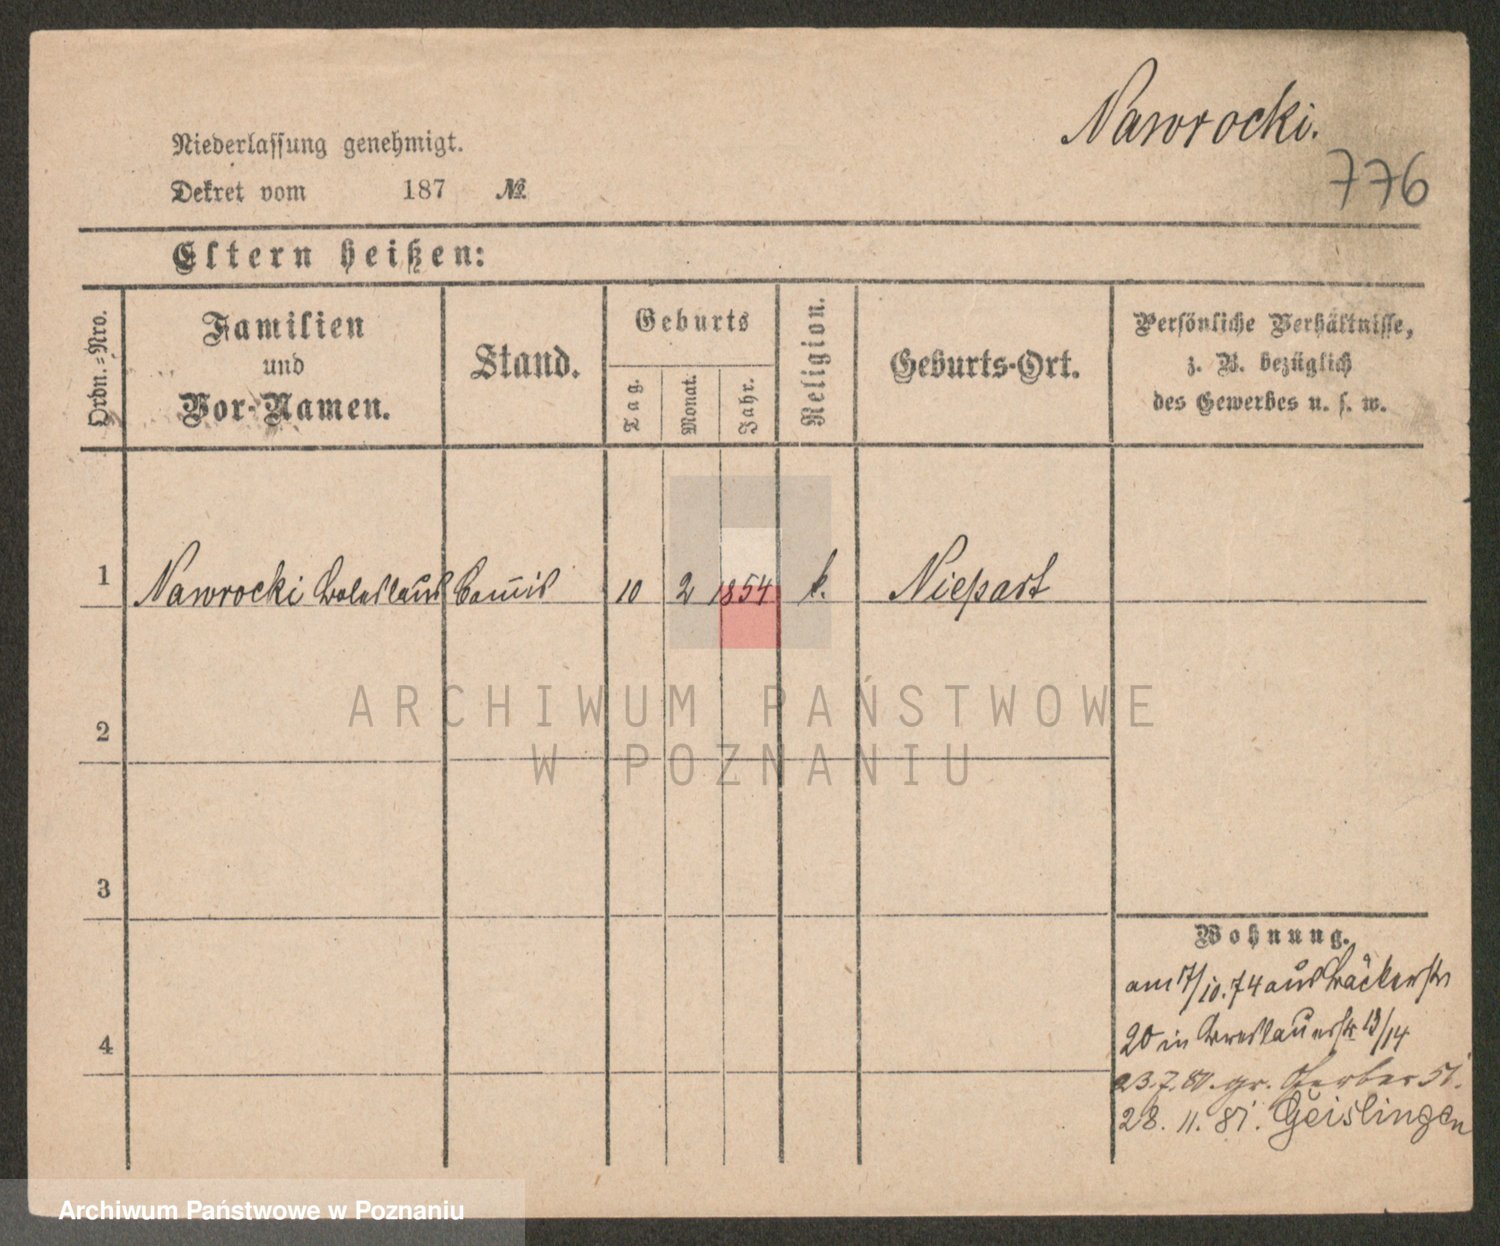 Nawrocki.
776
Niederlassung genehmigt.
Dekret vom 187 №
Eltern heißen:
Ordn.=Nro.
Familien
und
Vor-Namen.
Stand.
Geburts
Tag.
Monat.
Jahr.
Religion.
Geburts-Ort.
Persönliche Verhältnisse,
z. B. bezüglich
des Gewerbes u. s. w.
1 Nawrocki Boleslaus Comis 10 2 1854 k. Niepart
2
3
4
Wohnung.
am 17/10.74 aus Bäckerstr
20 in Breslauerstr 13/14
23.7.80. gr. Gerber 51.
28. 11. 81. Geislingen
ARCHIWUM PAŃSTWOWE
W POZNANIU
Archiwum Państwowe w Poznaniu